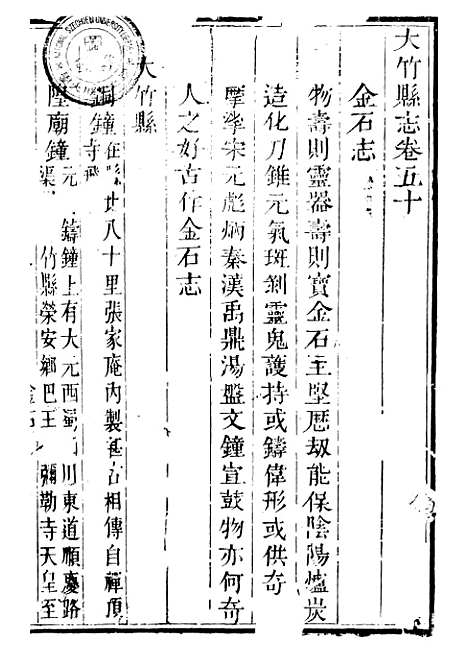 大竹縣志卷五十
金石志
物壽則靈器壽則寶金石主堅歷劫能保陰陽爐炭
造化刀錐元氣斑剝靈鬼護持或鑄偉形或供奇
摩挲宋元彪炳秦漢禹鼎湯盤文鐘宣鼓物亦何奇
人之好古作金石志
大竹縣
銅鐘在縣北八十里張家庵內製甚古相傳自禪頂
寺飛
陞廟鐘元 鑄鐘上有大元西蜀 川東道順慶路
渠 竹縣榮安鄉巴王 彌勒寺天皇至
金石